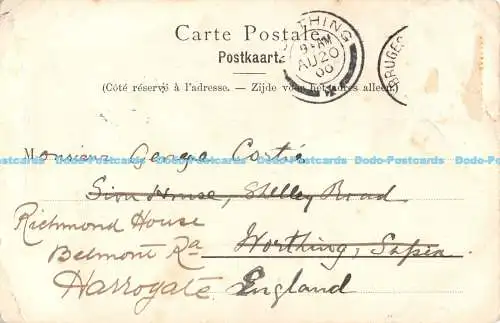 Carte Postale
Postkaart
(Côté réservé à l'adresse. — Zijde voor het adres alleen.)
THING
9 AM
AU 20
00
BRUGES
Monsieur George Costé
Sion House, Shelley Road
Richmond House
Worthing, Sussex
Belmont Rd
Harrogate England
Dodo-Postcards Dodo-Postcards Dodo-Postcards Dodo-Postcards Dodo-Postcards Dodo-Postcards